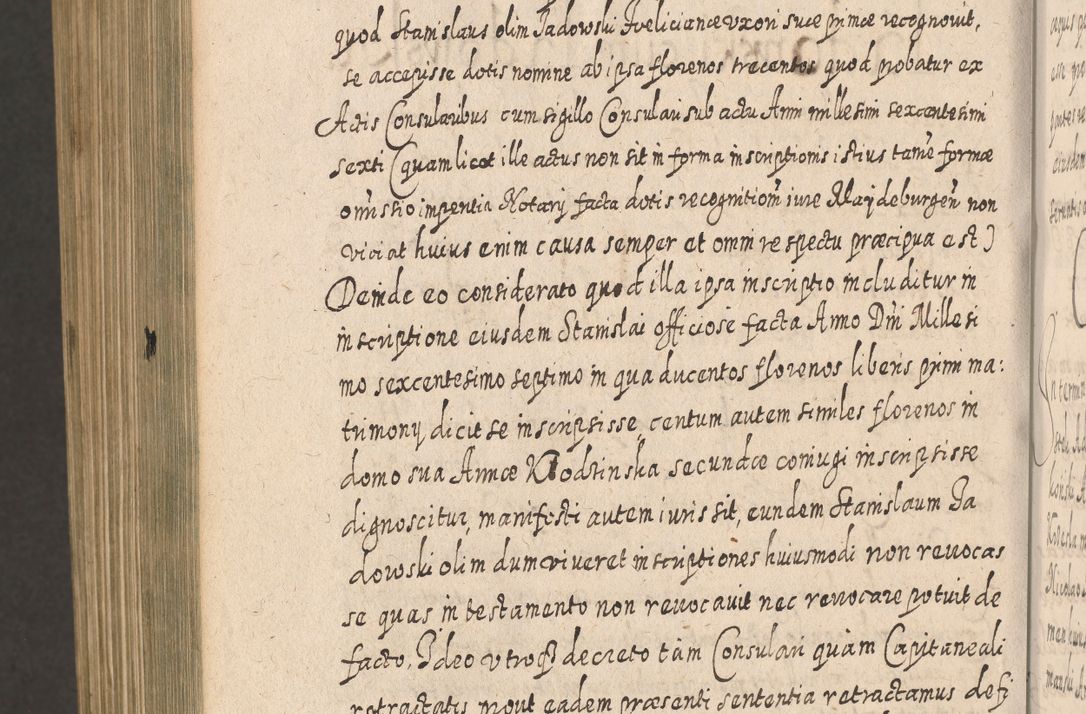 quod Stanislaus olim Jadowski Feliciance uxori suce primce recognouit,
se accepisse dotis nomine ab ipsa florenos trecentos quod probatur ex
Actis Consularibus cum sigillo Consulari sub actu Anni millesimi sexcentesimi
sexti (quam licet ille actus non sit in forma inscriptionis istius tamẽ formæ
omissio imperitia Notarij facta dotis recognitiom̃ iure Maijdeburgeñ non
viciat huius enim causa semper et omni respectu præcipua est)
Deinde eo considerato quod illa ipsa inscriptio includitur in
inscriptione eiusdem Stanislai officiose facta Anno Dn̄i Millesi
mo sexcentesimo septimo in qua ducentos florenos liberis primi ma:
trimonij dicit se inscripsisse, centum autem similes florenos in
domo sua Annæ Klodzinska secundæ coniugi inscripsisse
dignoscitur, manifesti autem iuris sit, eundem Stanislaum Ja
dowski olim dum viueret inscriptiones huiusmodi non reuocas
se quas in testamento non reuocauit nec reuocare potuit de
facto, Ideo vtroqȝ decreto tàm Consulari quàm Capitaneali
retractatis prout eadem præsenti sententia retractamus defi